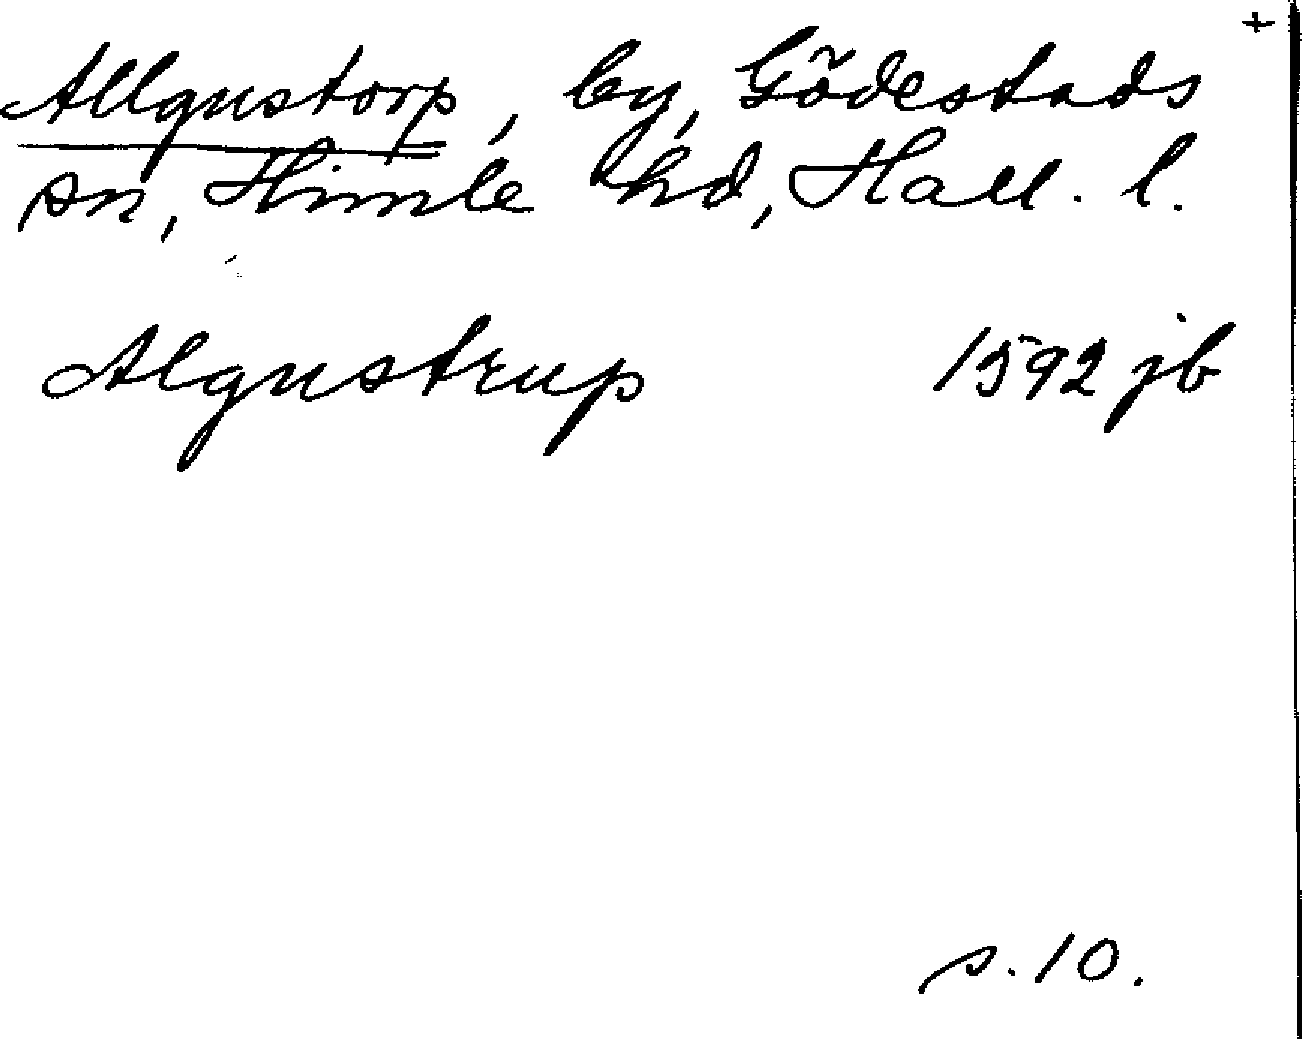 +
Allgustorp, by, Gödestads
sn, Himle hd, Hall. l.
Algustrup 1592 jb
s. 10.